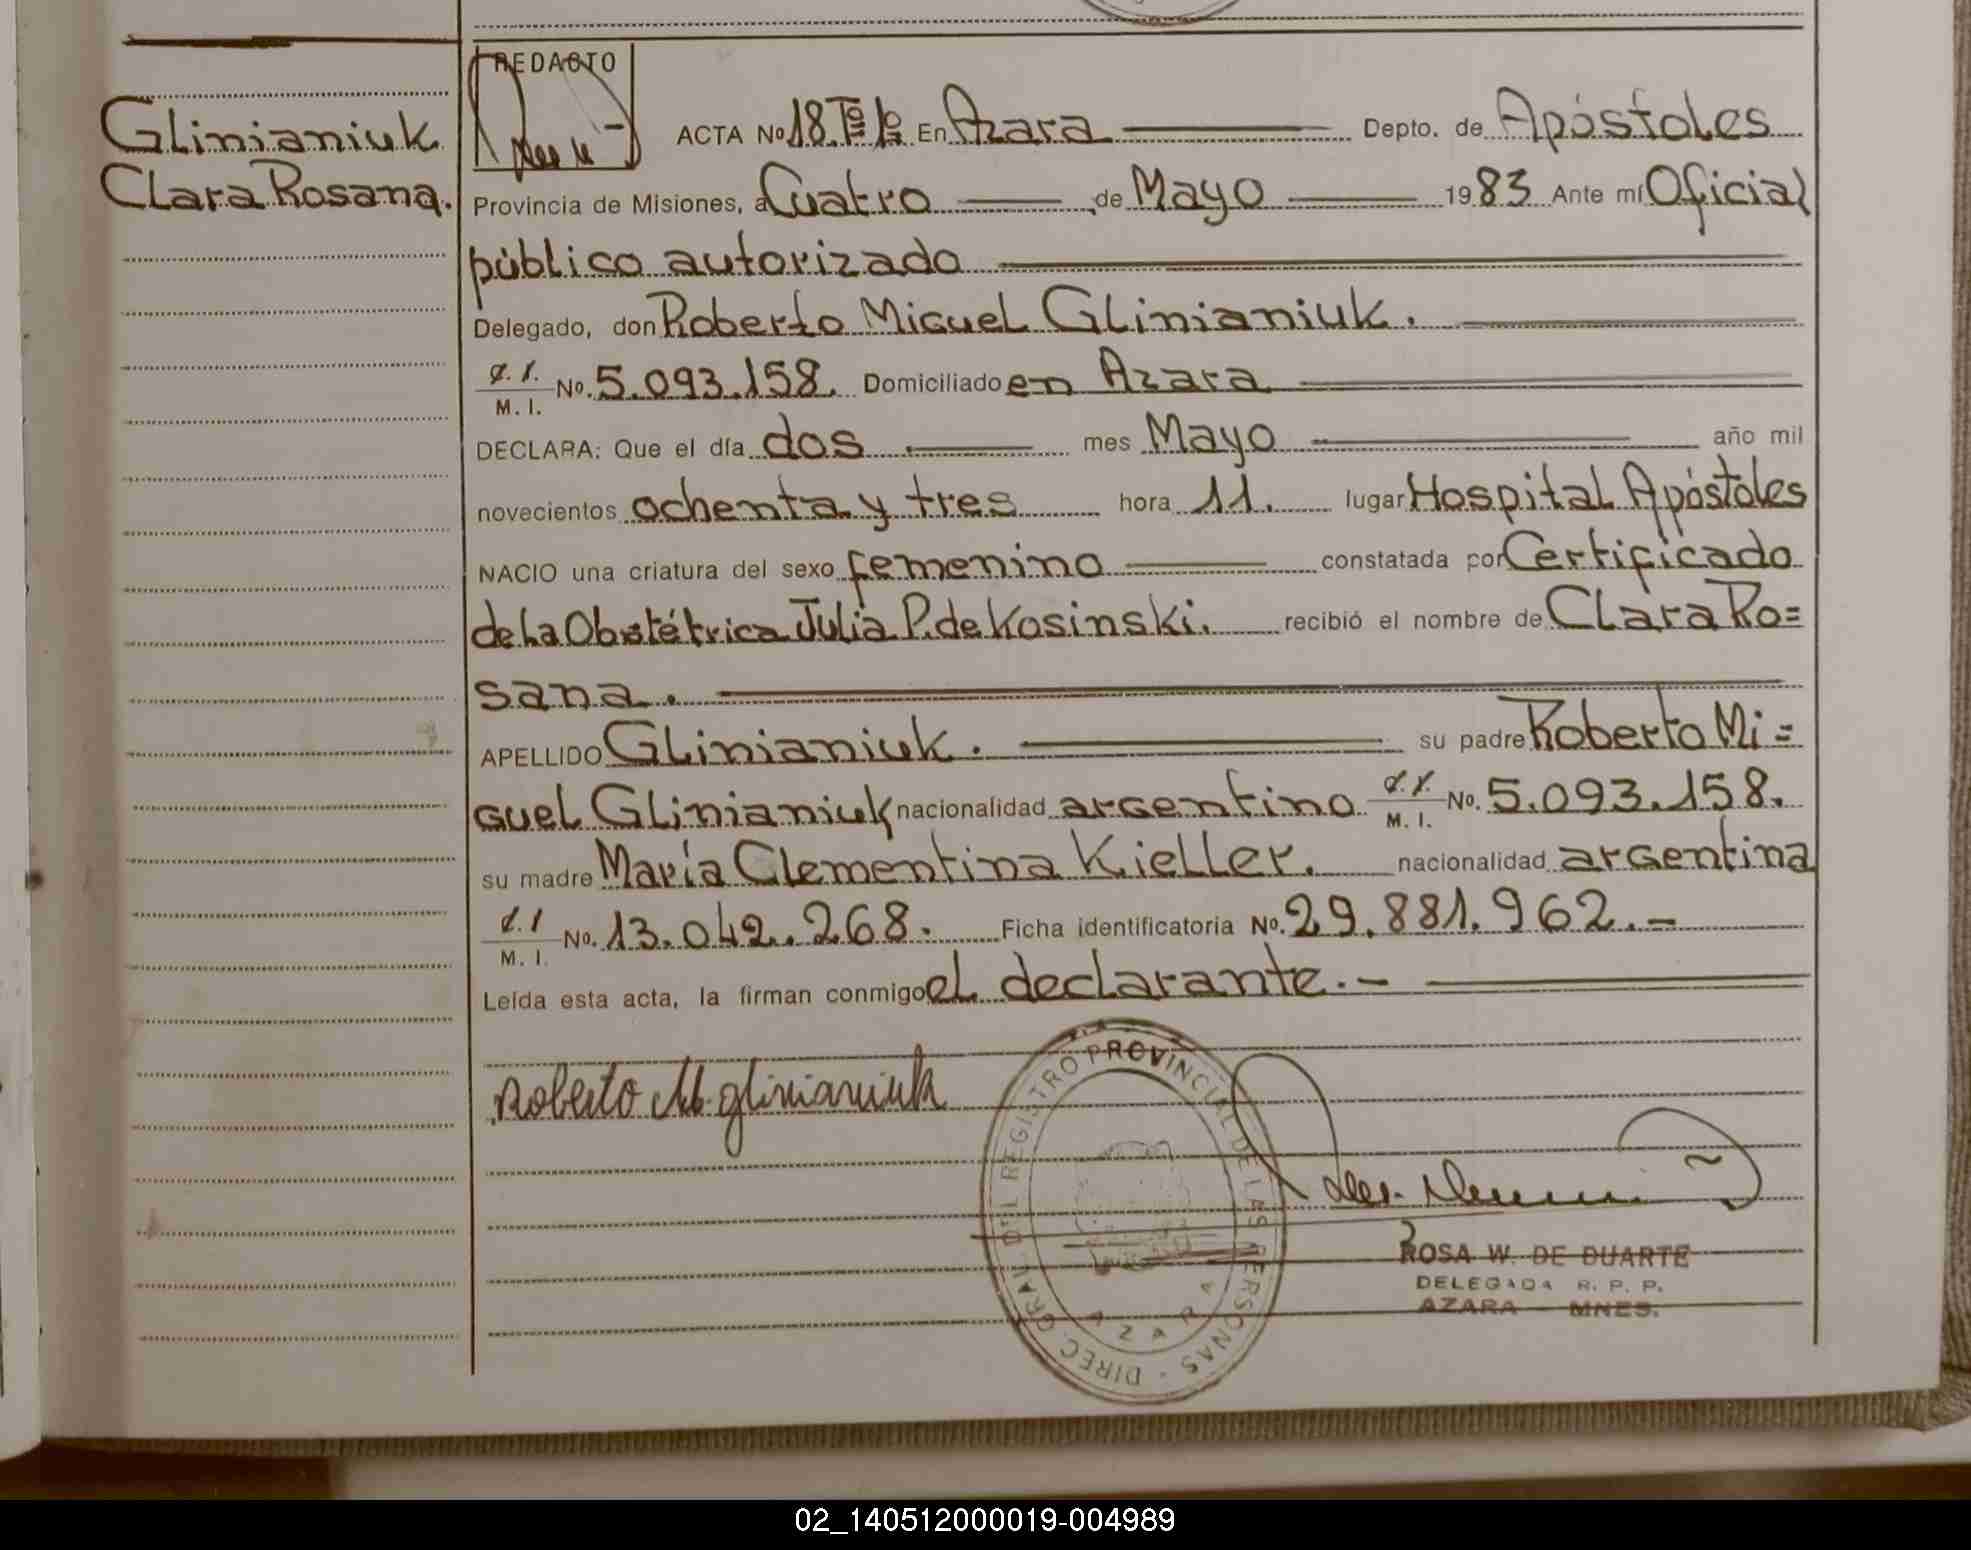 Glinianiuk
Clara Rosana.
REDACTO
ACTA No 18. Tº 1º En Azara Depto. de Apóstoles
Provincia de Misiones, a Cuatro de Mayo 1983 Ante mí Oficial
público autorizado
Delegado, don Roberto Miguel Glinianiuk.
C. I.
M. I. No. 5.093.158. Domiciliado en Azara
DECLARA: Que el día dos mes Mayo año mil
novecientos ochenta y tres hora 11. lugar Hospital Apóstoles
NACIO una criatura del sexo femenino constatada por Certificado
de la Obstétrica Julia P. de Kosinski. recibió el nombre de Clara Ro=
sana.
APELLIDO Glinianiuk. su padre Roberto Mi=
guel Glinianiuk nacionalidad argentino C. I. M. I. No. 5.093.158.
su madre María Clementina Kieller. nacionalidad argentina
C. I. M. I. No. 13.042.268. Ficha identificatoria No. 29.881.962.-
Leída esta acta, la firman conmigo el declarante.-
Roberto M. glinianiuk
DIREC. GRAL. DEL REGISTRO PROVINCIAL DE LAS PERSONAS
AZARA
ROSA W. DE DUARTE
DELEGADA R. P. P.
AZARA - MNES.
02_140512000019-004989